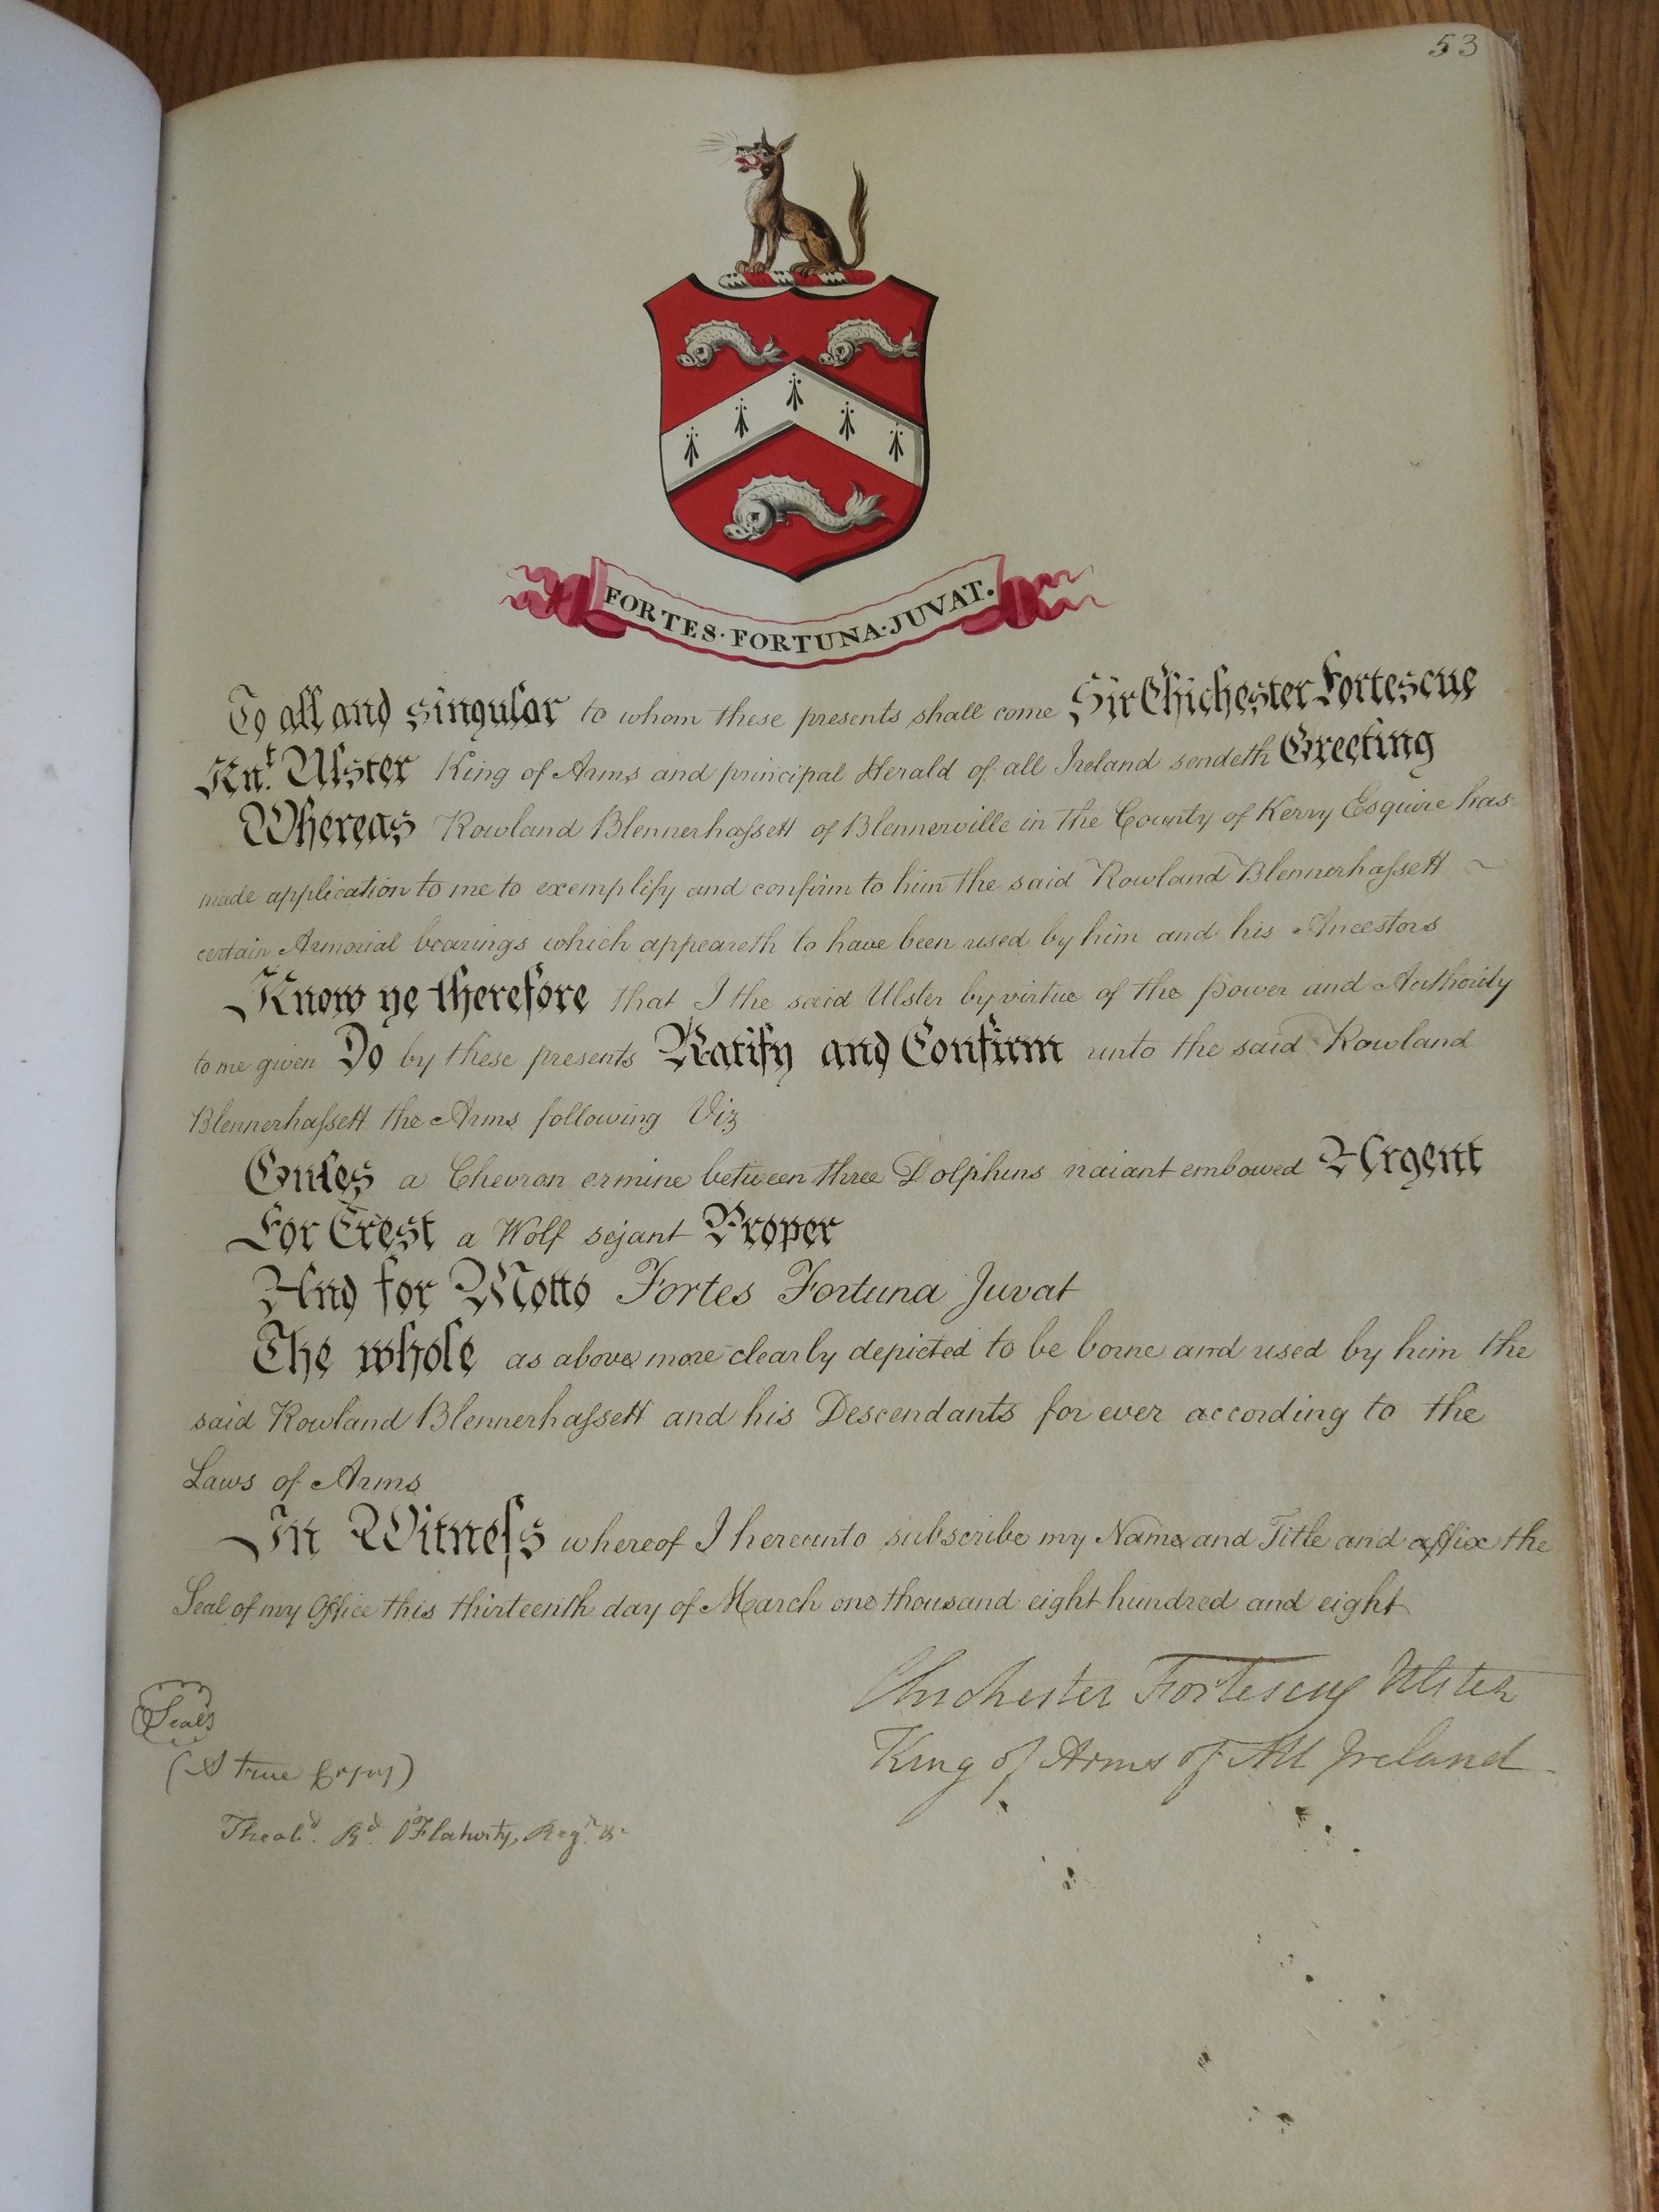 53
FORTES·FORTUNA·JUVAT.
To all and singular to whom these presents shall come Sir Chichester Fortescue
Knt. Ulster King of Arms and principal Herald of all Ireland sendeth Greeting
Whereas Rowland Blennerhaſsett of Blennerville in the County of Kerry Esquire has
made application to me to exemplify and confirm to him the said Rowland Blennerhaſsett ~
certain Armorial bearings which appeareth to have been used by him and his Ancestors
Know ye therefore that I the said Ulster by virtue of the power and Authority
to me given Do by these presents Ratify and Confirm unto the said Rowland
Blennerhaſsett the Arms following Viz
Gules a Chevron ermine between three Dolphins naiant embowed Argent
For Crest a Wolf sejant Proper
And for Motto Fortes Fortuna Juvat
The whole as above more clearly depicted to be borne and used by him the
said Rowland Blennerhaſsett and his Descendants for ever according to the
Laws of Arms
In Witneſs whereof I hereunto subscribe my Name and Title and affix the
Seal of my Office this thirteenth day of March one thousand eight hundred and eight
Chichester Fortescue Ulster
King of Arms of All Ireland
Seal
(A true Copy)
Theobd. Rd. O'Flaherty, Regr.